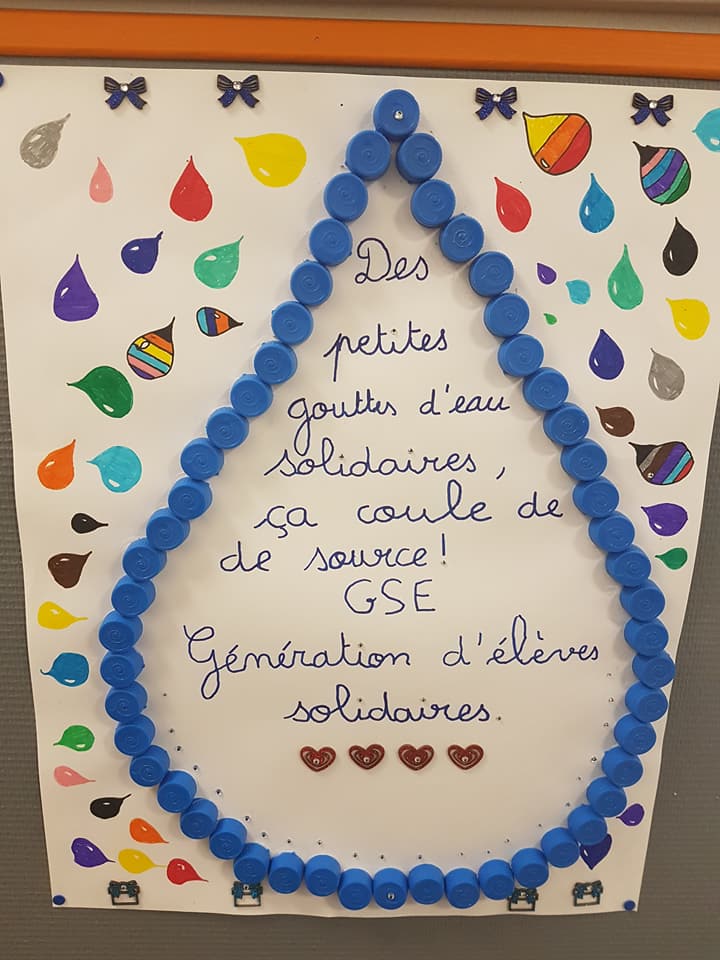 Des
petites
gouttes d'eau
solidaires,
ça coule de
de source!
GSE
Génération d'élèves
solidaires.